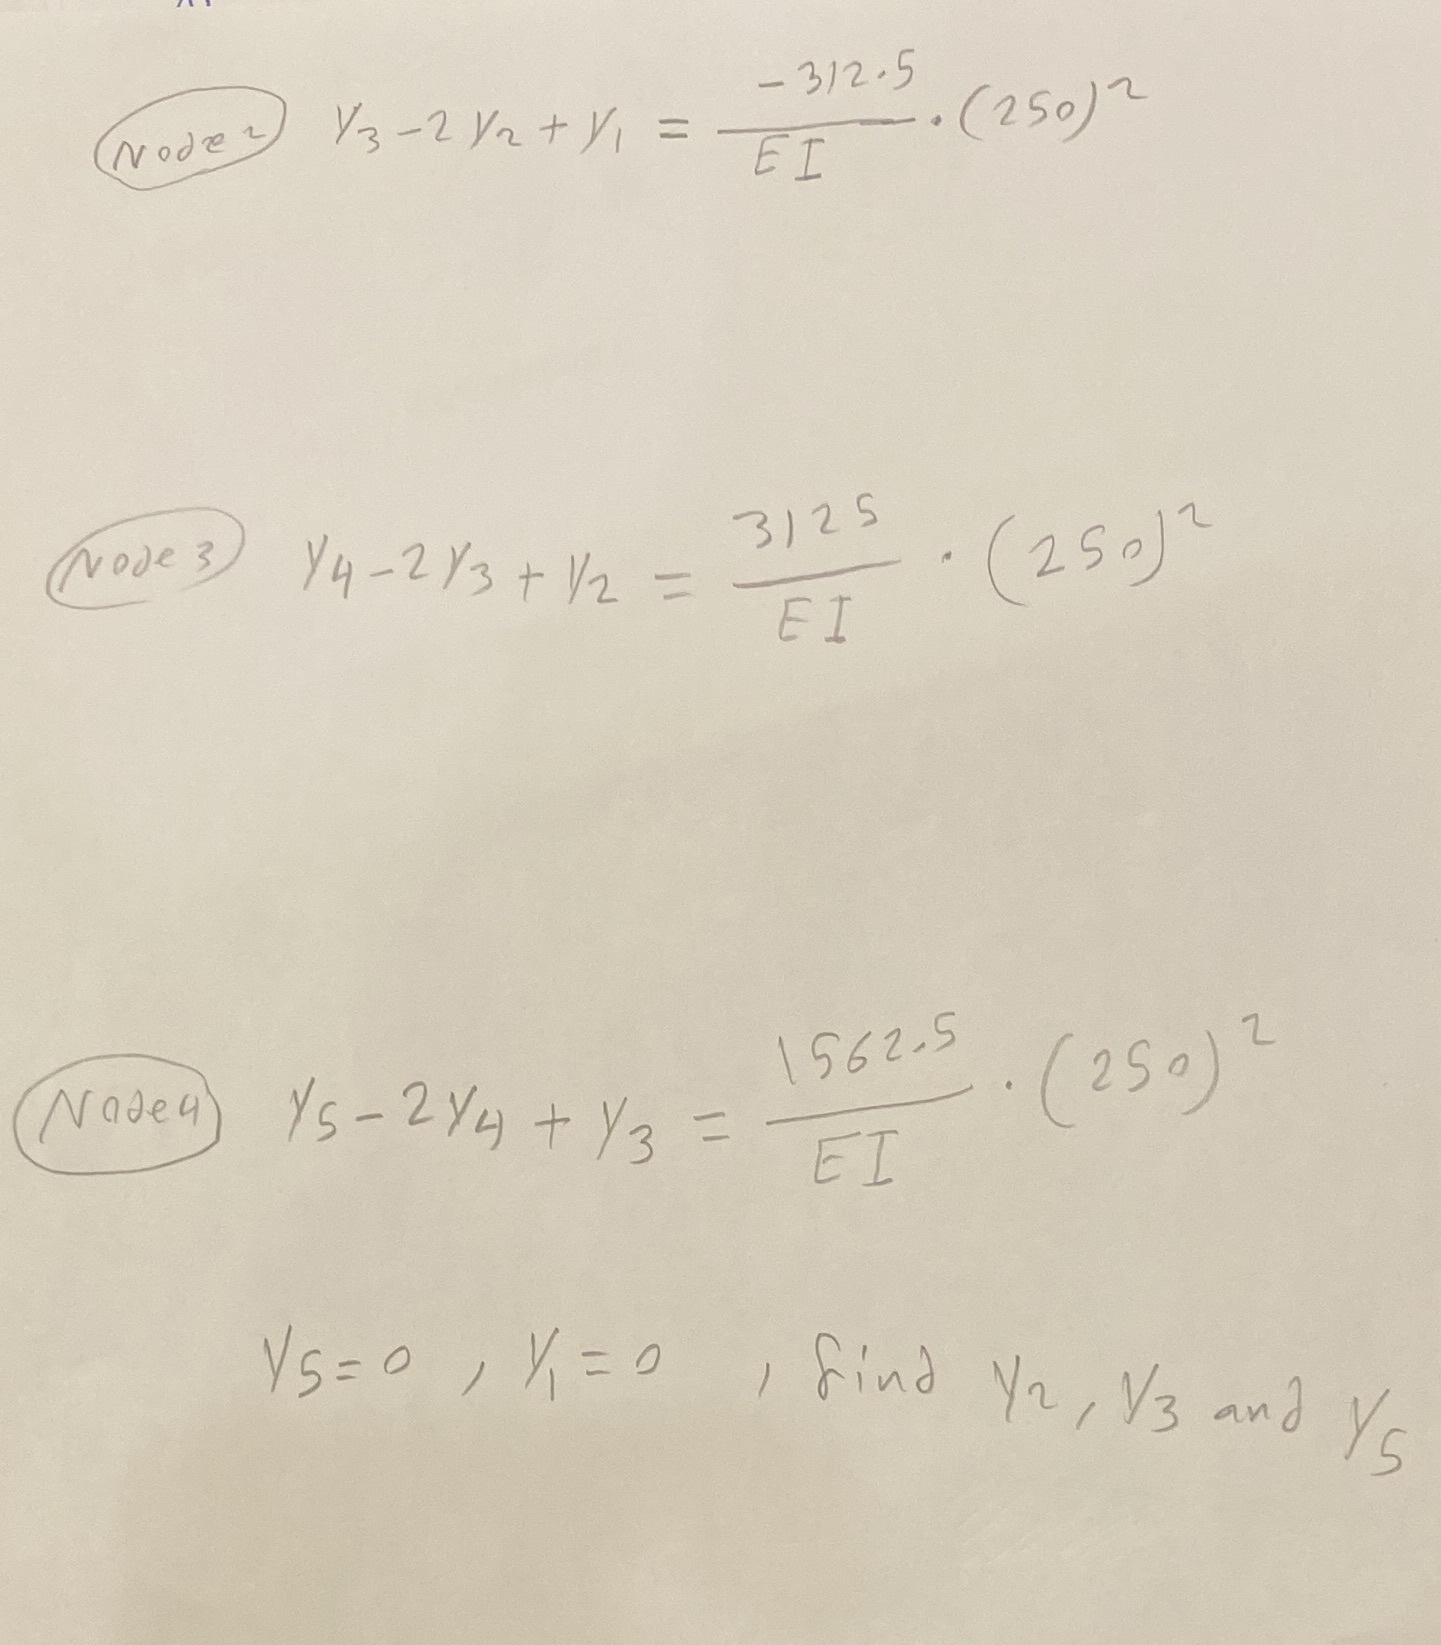 Node 2 y₃ - 2y₂ + y₁ = -312.5 / EI · (250)²
Node 3 y₄ - 2y₃ + y₂ = 3125 / EI · (250)²
Node 4 y₅ - 2y₄ + y₃ = 1562.5 / EI · (250)²
y₅ = 0 , y₁ = 0 , find y₂, y₃ and y₅